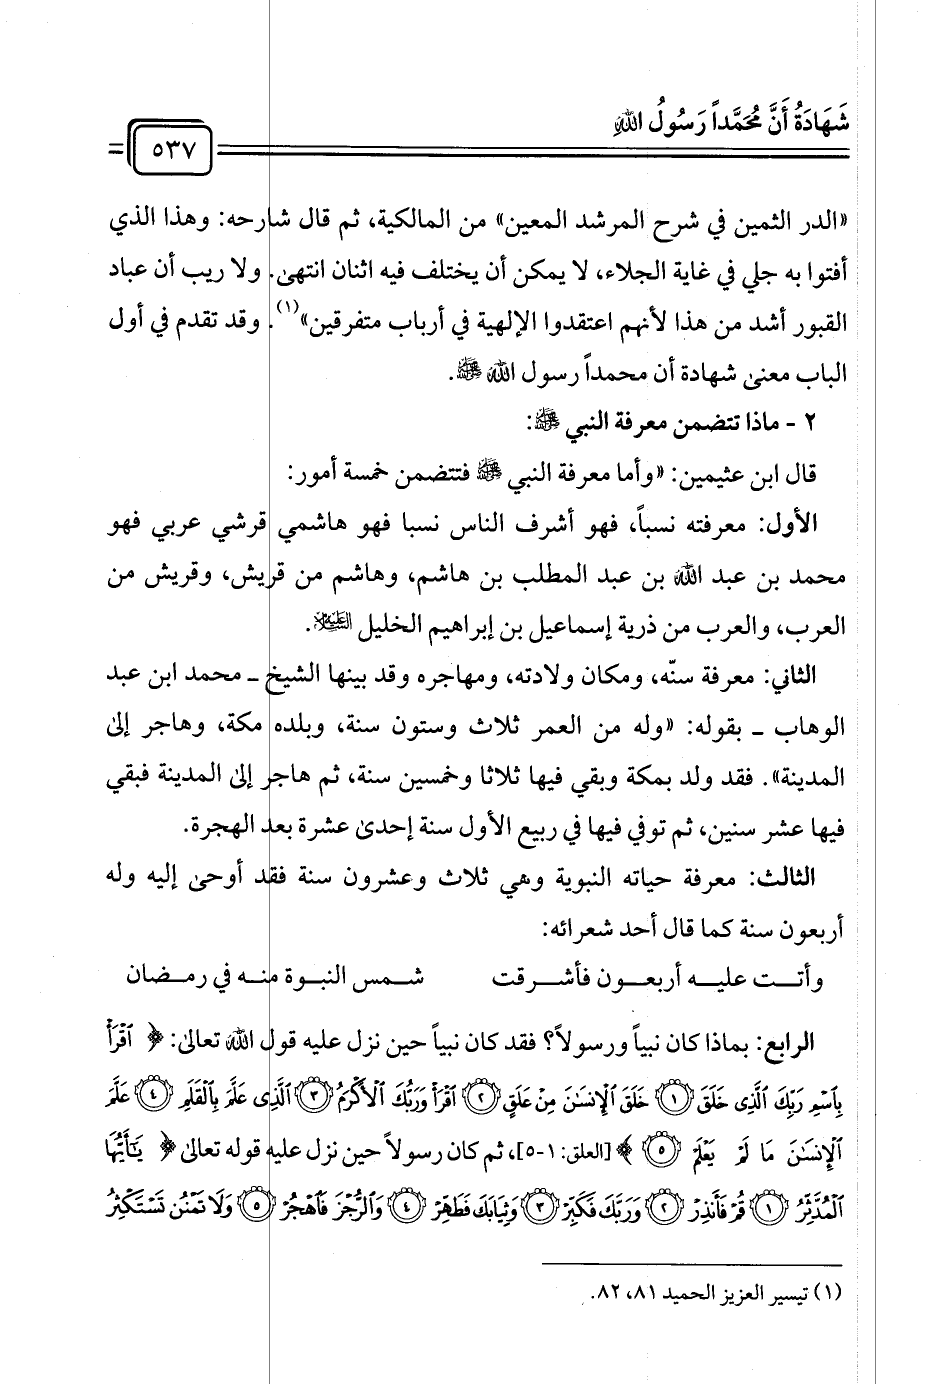 شَهَادَةُ أَنَّ مُحَمَّداً رَسُولُ اللهِ
٥٣٧
«الدر الثمين في شرح المرشد المعين» من المالكية، ثم قال شارحه: وهذا الذي
أفتوا به جلي في غاية الجلاء، لا يمكن أن يختلف فيه اثنان انتهى. ولا ريب أن عباد
القبور أشد من هذا لأنهم اعتقدوا الإلهية في أرباب متفرقين»(١). وقد تقدم في أول
الباب معنى شهادة أن محمداً رسول الله ﷺ.
٢ - ماذا تتضمن معرفة النبي ﷺ:
قال ابن عثيمين: «وأما معرفة النبي ﷺ فتتضمن خمسة أمور:
الأول: معرفته نسباً، فهو أشرف الناس نسبا فهو هاشمي قرشي عربي فهو
محمد بن عبد الله بن عبد المطلب بن هاشم، وهاشم من قريش، وقريش من
العرب، والعرب من ذرية إسماعيل بن إبراهيم الخليل عليه السلام.
الثاني: معرفة سنّه، ومكان ولادته، ومهاجره وقد بينها الشيخ ـ محمد ابن عبد
الوهاب ـ بقوله: «وله من العمر ثلاث وستون سنة، وبلده مكة، وهاجر إلى
المدينة». فقد ولد بمكة وبقي فيها ثلاثا وخمسين سنة، ثم هاجر إلى المدينة فبقي
فيها عشر سنين، ثم توفي فيها في ربيع الأول سنة إحدى عشرة بعد الهجرة.
الثالث: معرفة حياته النبوية وهي ثلاث وعشرون سنة فقد أوحى إليه وله
أربعون سنة كما قال أحد شعرائه:
وأتـت عليـه أربعـون فأشـرقت شـمس النبـوة منـه في رمـضان
الرابع: بماذا كان نبياً ورسولاً؟ فقد كان نبياً حين نزل عليه قول الله تعالى: ﴿ ٱقْرَأْ
بِٱسْمِ رَبِّكَ ٱلَّذِى خَلَقَ ۝١ خَلَقَ ٱلْإِنسَـٰنَ مِنْ عَلَقٍ ۝٢ ٱقْرَأْ وَرَبُّكَ ٱلْأَكْرَمُ ۝٣ ٱلَّذِى عَلَّمَ بِٱلْقَلَمِ ۝٤ عَلَّمَ
ٱلْإِنسَـٰنَ مَا لَمْ يَعْلَمْ ۝٥ ﴾ [العلق: ١-٥]، ثم كان رسولاً حين نزل عليه قوله تعالى ﴿ يَـٰٓأَيُّهَا
ٱلْمُدَّثِّرُ ۝١ قُمْ فَأَنذِرْ ۝٢ وَرَبَّكَ فَكَبِّرْ ۝٣ وَثِيَابَكَ فَطَهِّرْ ۝٤ وَٱلرُّجْزَ فَٱهْجُرْ ۝٥ وَلَا تَمْنُن تَسْتَكْثِرُ
(١) تيسير العزيز الحميد ٨١، ٨٢.